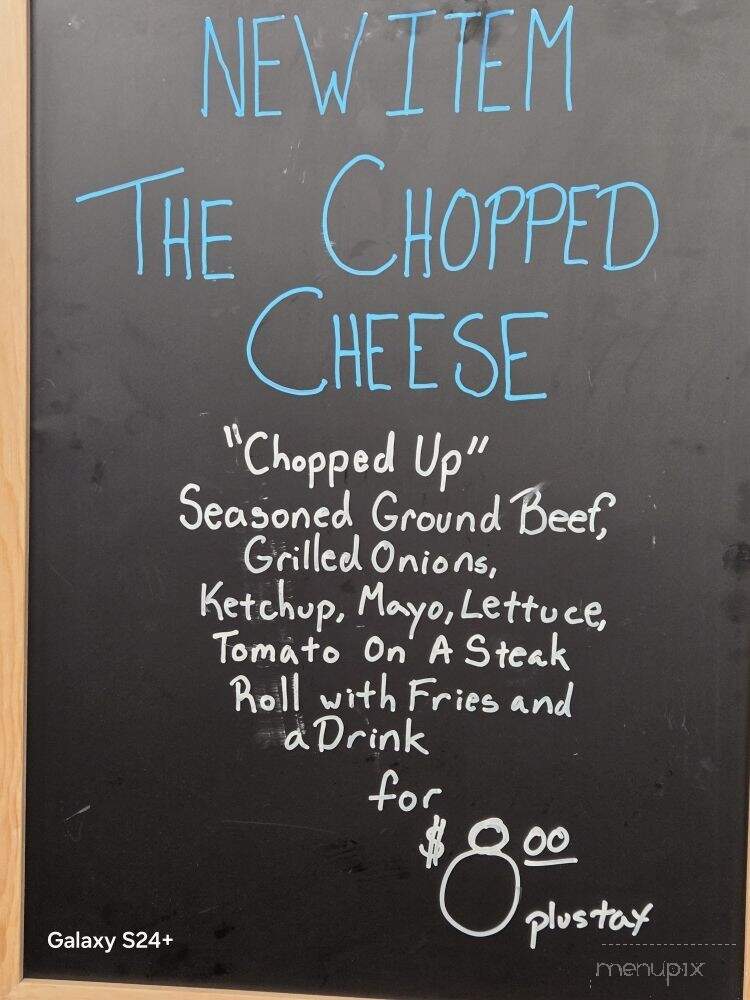 NEW ITEM
THE CHOPPED
CHEESE
"Chopped Up"
Seasoned Ground Beef,
Grilled Onions,
Ketchup, Mayo, Lettuce,
Tomato On A Steak
Roll with Fries and
a Drink
for
$8.00
plus tax
Galaxy S24+
menupix